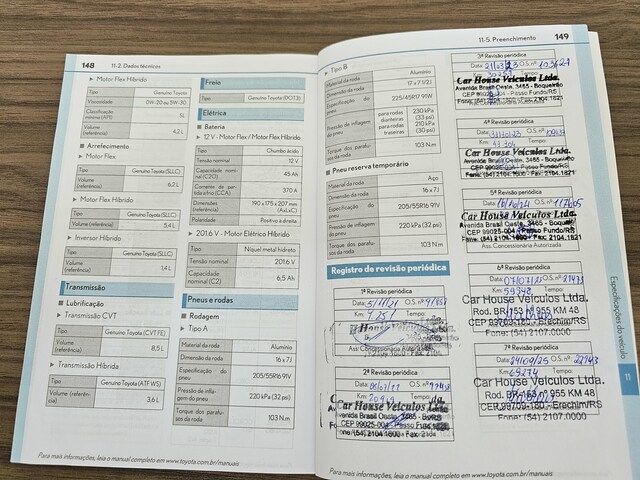 148
11-2. Dados técnicos
Motor Flex Híbrido
Tipo Genuíno Toyota
Viscosidade 0W-20 ou 5W-30
Classificação mínima (API) SL
Volume (referência) 4,2 L
Arrefecimento
Motor Flex
Tipo Genuíno Toyota (SLLC)
Volume (referência) 6,2 L
Motor Flex Híbrido
Tipo Genuíno Toyota (SLLC)
Volume (referência) 5,4 L
Inversor Híbrido
Tipo Genuíno Toyota (SLLC)
Volume (referência) 1,4 L
Transmissão
Lubrificação
Transmissão CVT
Tipo Genuíno Toyota (CVT FE)
Volume (referência) 8,5 L
Transmissão Híbrida
Tipo Genuíno Toyota (ATF WS)
Volume (referência) 3,6 L
Freio
Tipo Genuíno Toyota (DOT3)
Elétrica
Bateria
12 V - Motor Flex / Motor Flex Híbrido
Tipo Chumbo ácido
Tensão nominal 12 V
Capacidade nominal (C20) 45 Ah
Corrente de partida a fria (CCA) 370 A
Dimensões (referência) 190 x 175 x 207 mm (AxLxC)
Polaridade Positivo à direita
201.6 V - Motor Elétrico Híbrido
Tipo Níquel metal hidreto
Tensão nominal 201.6 V
Capacidade nominal (C2) 6,5 Ah
Pneus e rodas
Rodagem
Tipo A
Material da roda Alumínio
Dimensão da roda 16 x 7 J
Especificação do pneu 205/55R16 91V
Pressão de inflagem do pneu 220 kPa (32 psi)
Torque dos parafusos da roda 103 N.m
Para mais informações, leia o manual completo em www.toyota.com.br/manuais
11-5. Preenchimento
149
Tipo B
Material da roda Alumínio
Dimensão da roda 17 x 7 1/2 J
Especificação do pneu 225/45R17 91W
Pressão de inflagem do pneu
para rodas dianteiras 230 kPa (33 psi)
para rodas traseiras 210 kPa (30 psi)
Torque dos parafusos da roda 103 N.m
Pneu reserva temporário
Material da roda Aço
Dimensão da roda 16 x 7 J
Especificação do pneu 205/55R16 91V
Pressão de inflagem do pneu 220 kPa (32 psi)
Torque dos parafusos da roda 103 N.m
Registro de revisão periódica
1ª Revisão periódica
Data: O.S. nº:
Km: Tempo:
2ª Revisão periódica
Data: O.S. nº:
Km: Tempo:
Car House Veículos Ltda.
Avenida Brasil Oeste, 3485 - Boqueirão
CEP 99025-004 - Passo Fundo/RS
Fone: (54) 2104.1800 - Fax: 2104
3ª Revisão periódica
Data: O.S. nº:
Car House Veículos Ltda.
Avenida Brasil Oeste, 3485 - Boqueirão
CEP 99025-004 - Passo Fundo/RS
Fone: (54) 2104.1800 - Fax: 2104.1821
4ª Revisão periódica
Data: O.S. nº:
Km:
Car House Veículos Ltda.
Avenida Brasil Oeste, 3485 - Boqueirão
CEP 99025-004 - Passo Fundo/RS
Fone: (54) 2104.1800 - Fax: 2104.1821
5ª Revisão periódica
Data: O.S. nº:
Car House Veículos Ltda.
Avenida Brasil Oeste, 3485 - Boqueirão
CEP 99025-004 - Passo Fundo/RS
Fone: (54) 2104.1800 - Fax: 2104.1821
Ass. Concessionária Autorizada
6ª Revisão periódica
Data: O.S. nº:
Km: 59348 Tempo:
Car House Veículos Ltda.
Rod. BR-153 nº 955 KM 48
CEP 99703-180 - Erechim/RS
Fone: (54) 2107.0000
7ª Revisão periódica
Data: 24/09/25 O.S. nº: 22943
Km: 69274 Tempo:
Car House Veículos Ltda.
Rod. BR-153 nº 955 KM 48
CEP 99703-180 - Erechim/RS
Fone: (54) 2107.0000
Especificações do veículo
11
Para mais informações, leia o manual completo em www.toyota.com.br/manuais